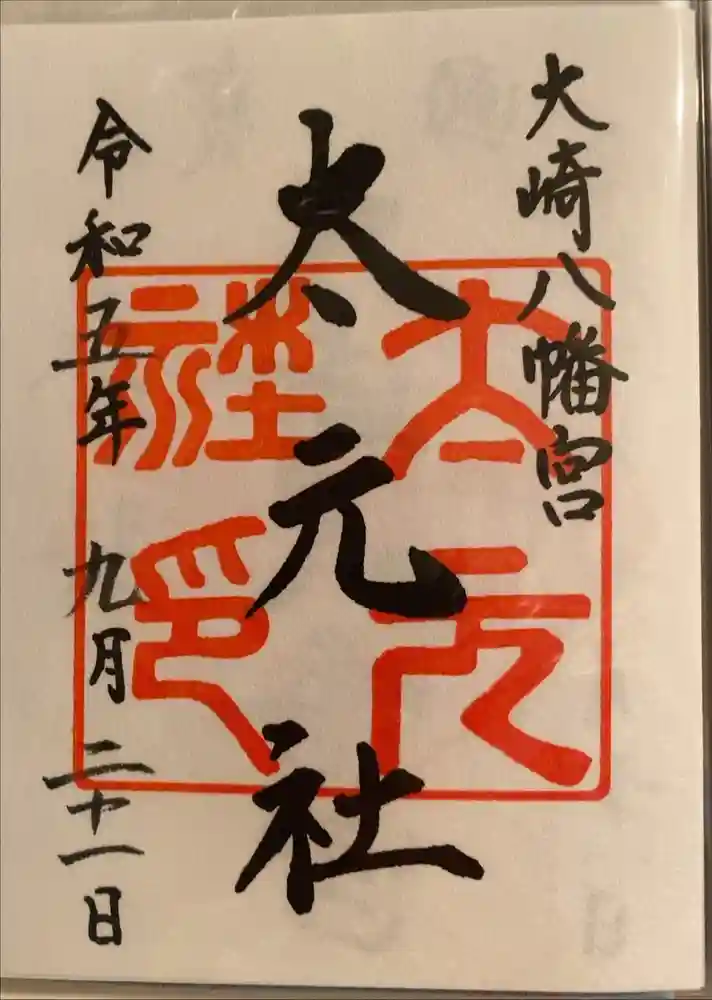 大崎八幡宮
太元社
令和五年 九月 二十一日
太元社印